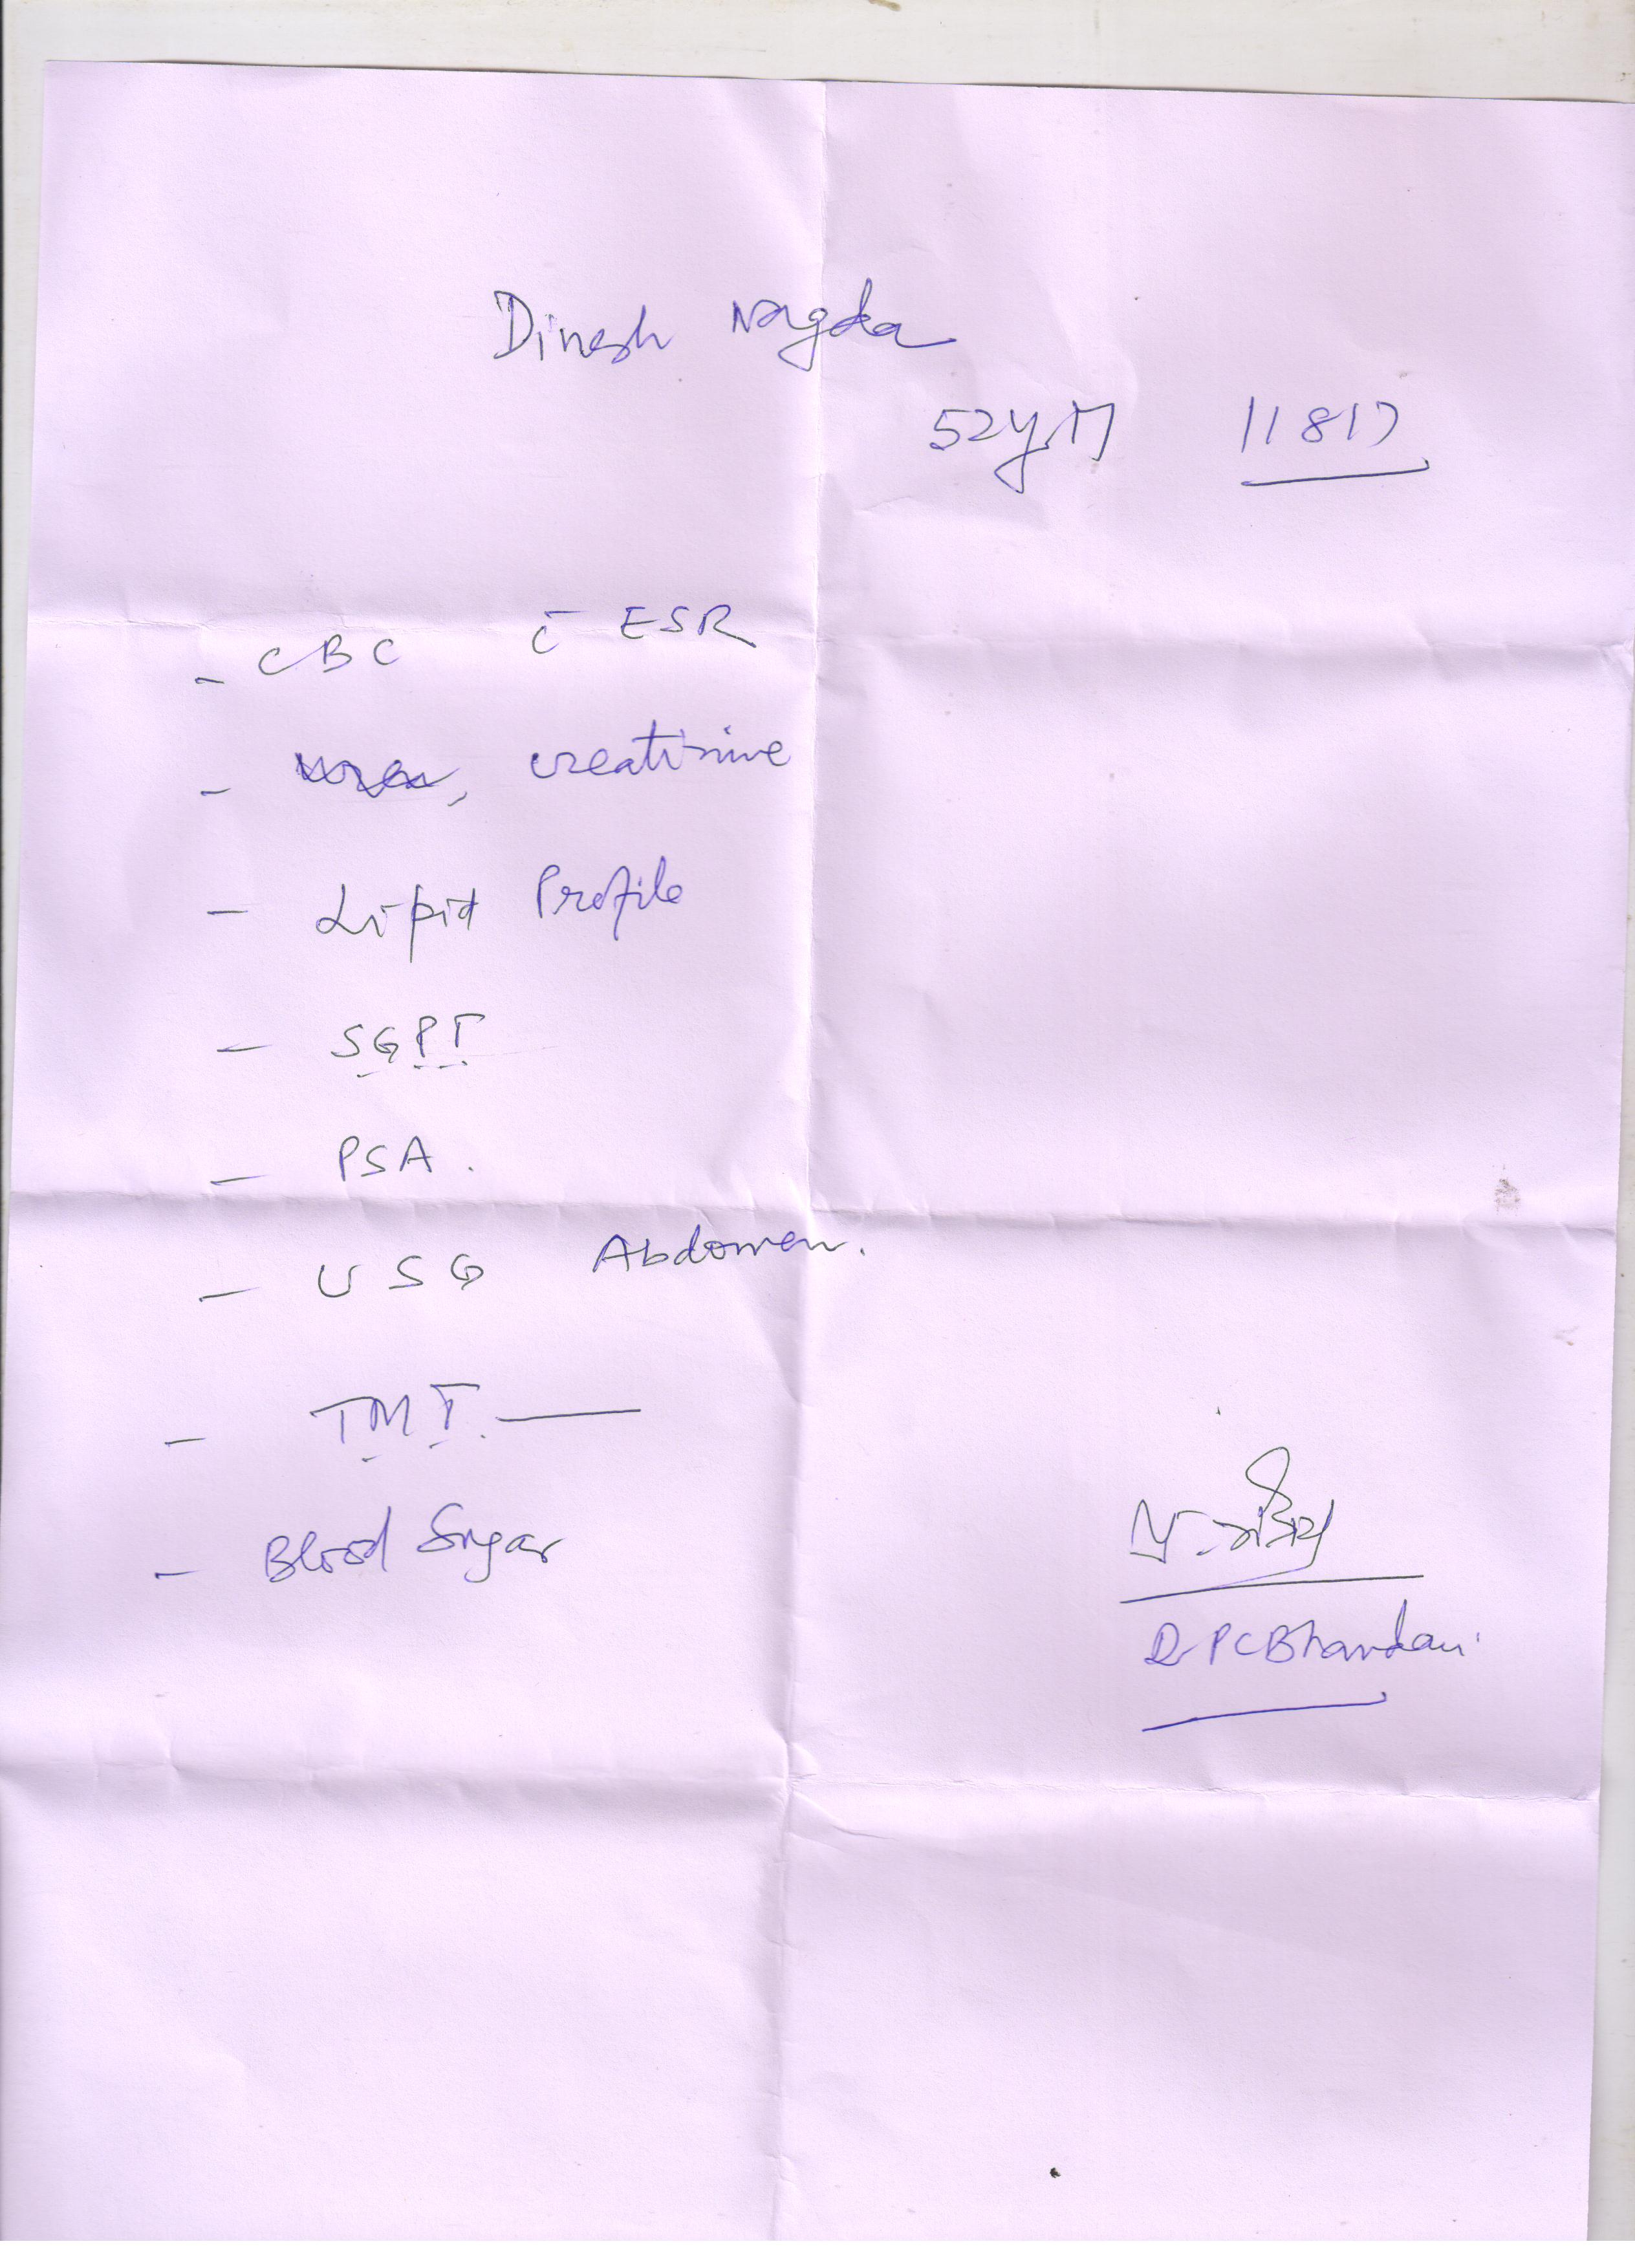 Dinesh Nagda
52y M 11817
- CBC c̄ ESR
- urea, creatinine
- Lipid Profile
- SGPT
- PSA.
- USG Abdomen.
- TMT. —
- Blood Sugar
Dr PC Bhandari